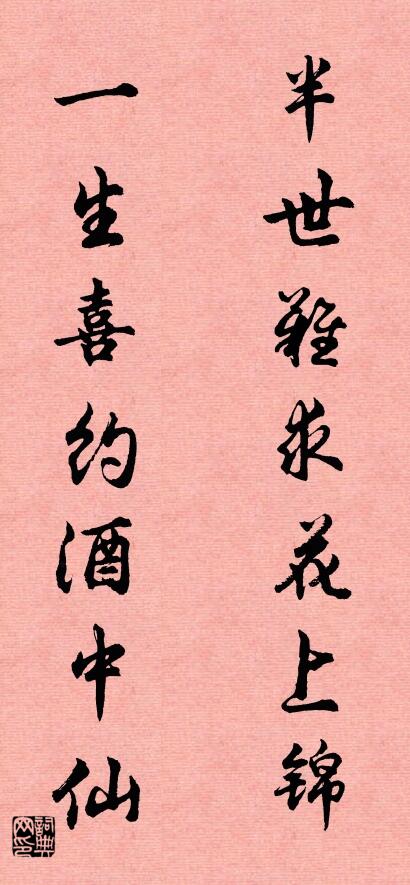 半世難求花上锦
一生喜约酒中仙
詞典网印